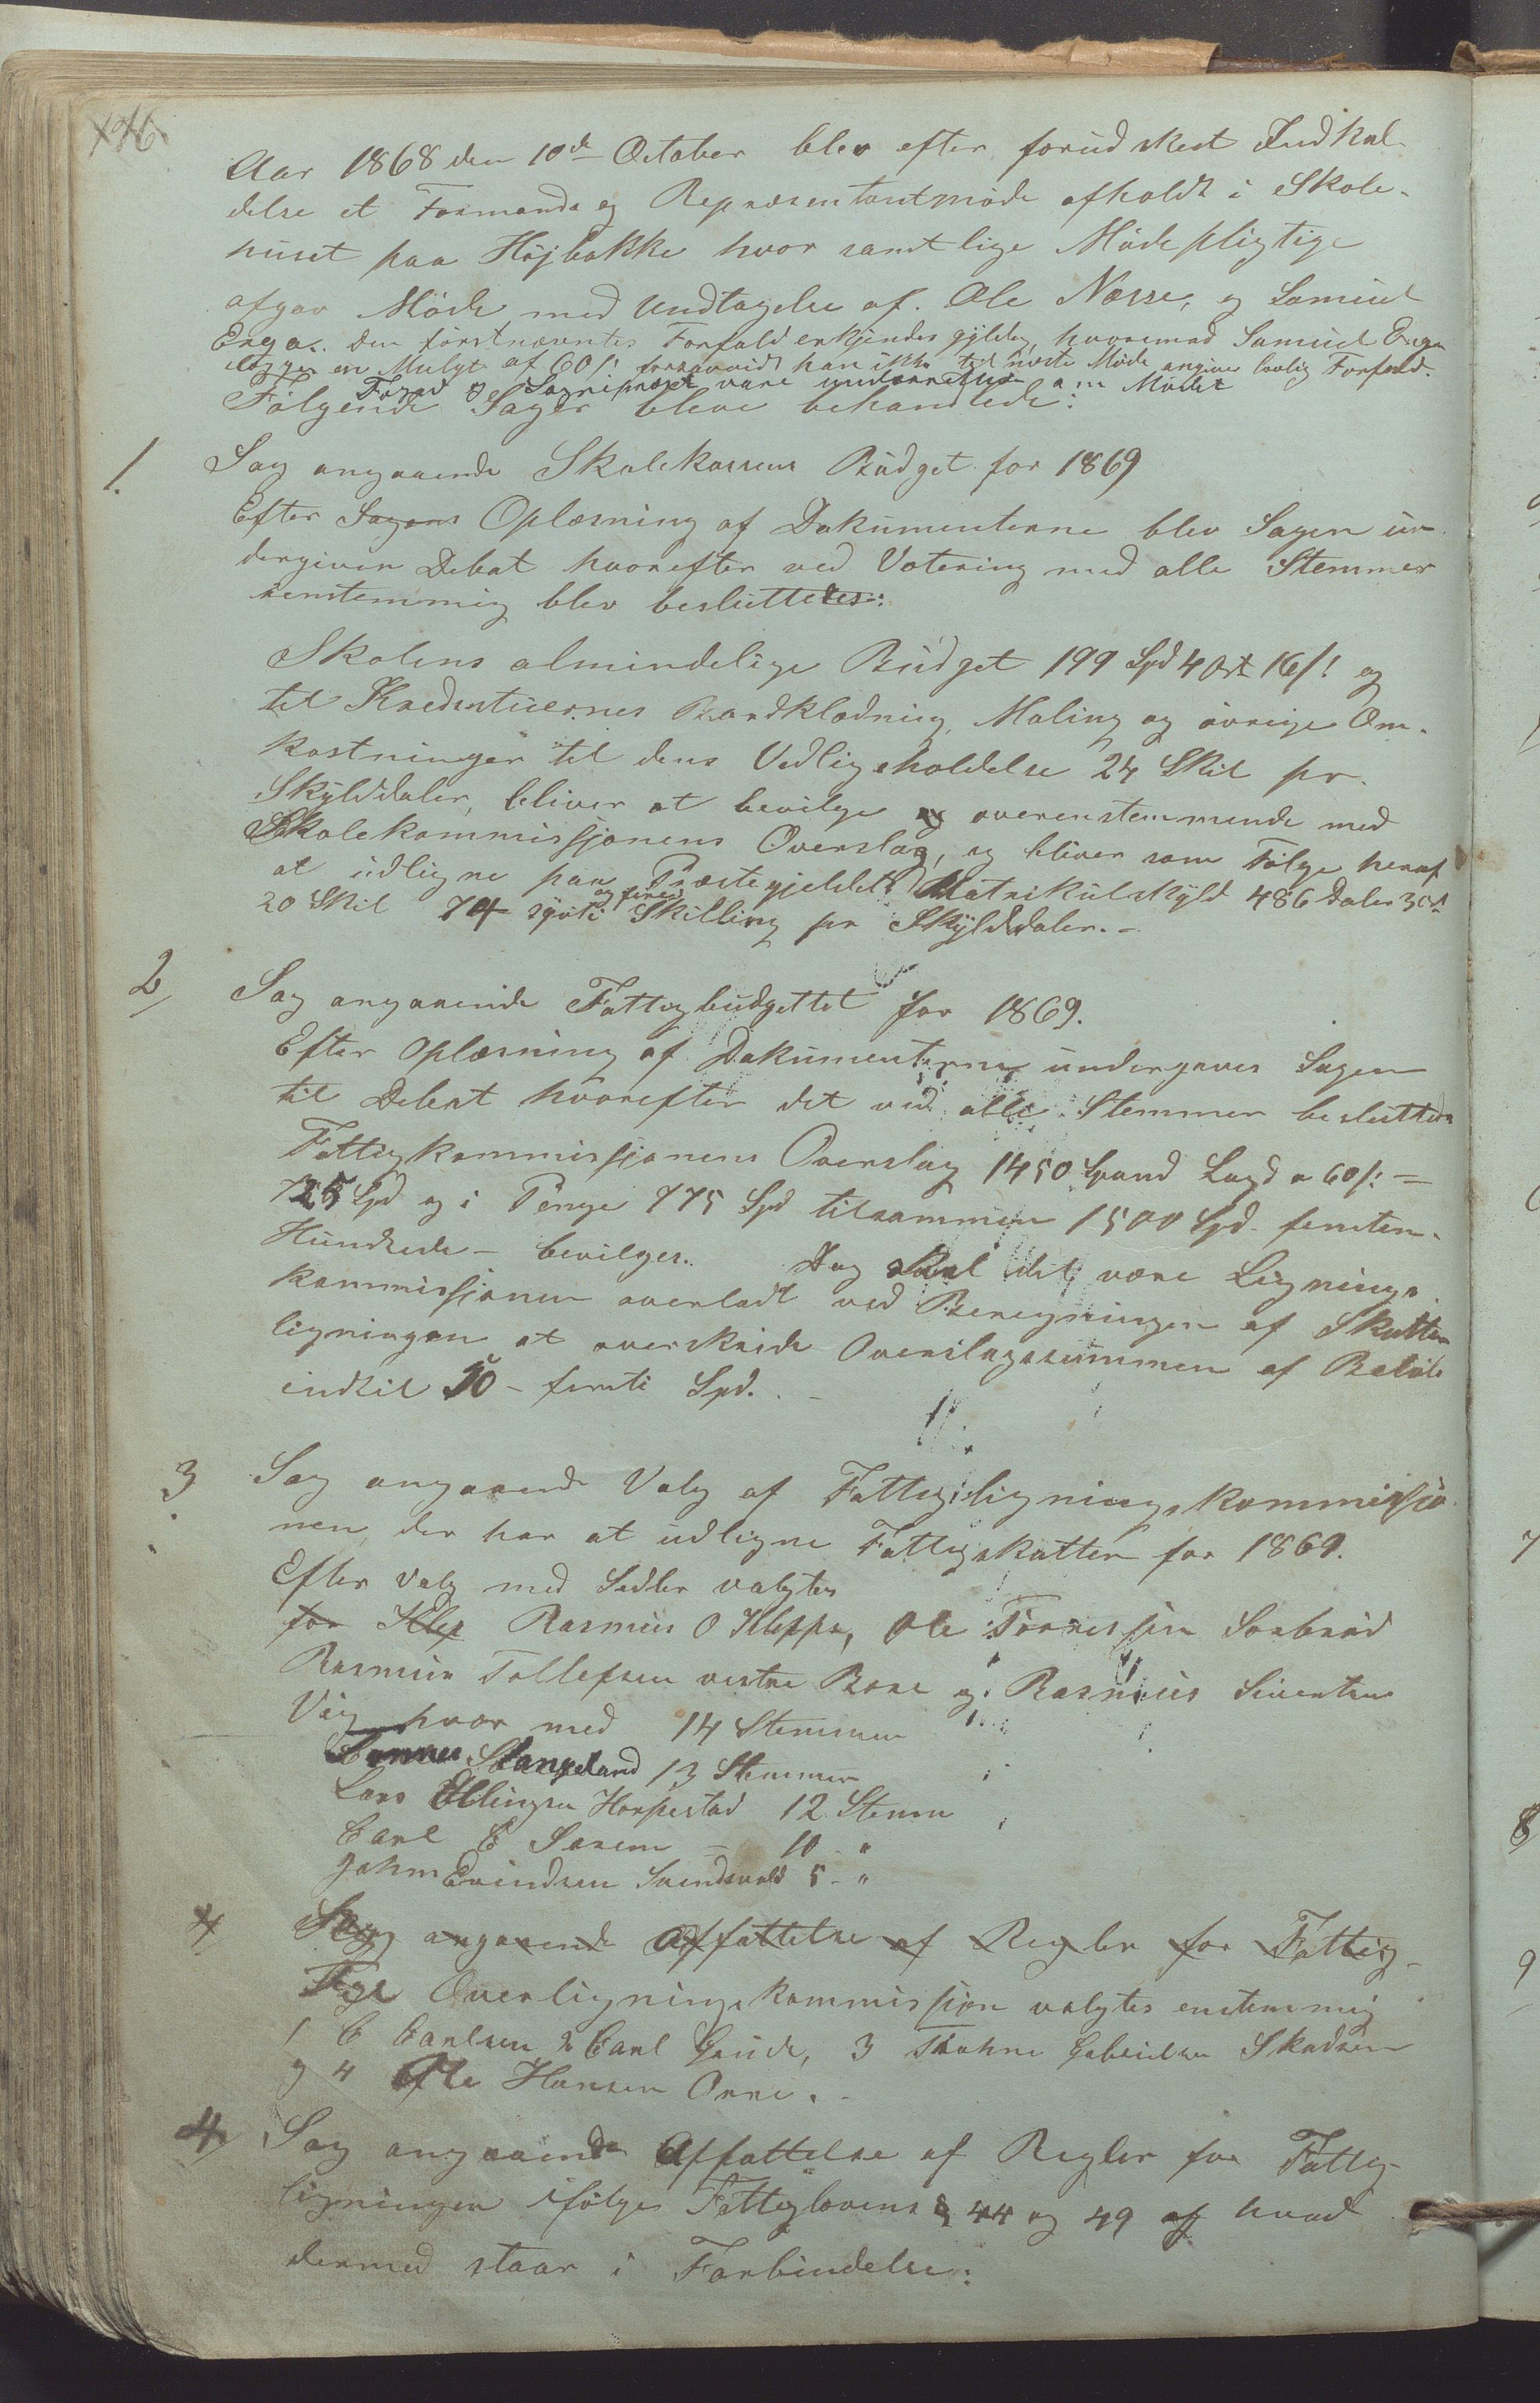 Aar 1868 den 10de October blev efter forudskeet Indkal-
delse et Formands og Repræsentantmøde afholdt i Skole-
huset paa Højbakke hvor samtlige Mødepligtige
afgav Møde med Undtagelse af. Ole Næsse, og Samuel
Erga. Den førstnævntes Forfald erkjendes gyldig, hvoremod Samuel Erga
ilægges en Mulgt af 60 s. forsaavidt han ikke til næste Møde angiver lovlig Forfald.
Foged og Sognepræst vare underrettede om Mødet
Følgende Sager bleve behandlede:
1. Sag angaaende Skolekassens Budget for 1869
Efter Sagens Oplæsning af Dokumenterne blev Sagen un-
dergiven Debat hvorefter ved Votering med alle Stemmer
eenstemmig blev besluttedes:
Skolens almindelige Budget 199 Spd 4 Ort 16 s. og
til Bordklædning, Maling og øvrige Om-
kostninger til dens Vedligeholdelse 24 Skil pr.
Skylddaler, bliver at bevilge og overenstemmende med
Skolekommissjonens Overslag, og bliver som Følge heraf
at udligne paa Præstegjeldets Matrikulskyld 486 Daler 3 Ort
20 Skil 74 sytti og fire Skilling pr Skylddaler. -
2, Sag angaaende Fattigbudgettet for 1869.
Efter Oplæsning af Dokumenterne undergaves Sagen
til Debat hvorefter det ved alle Stemmer besluttedes
Fattigkommissjonens Overslag 1450 Spand Lagd a 60 s. =
725 Spd og i Penge 775 Spd tilsammen 1500 Spd - femten-
Hundrede - bevilges. Dog skal det være Lignings-
kommissjonen overladt ved Beregningen af Skatte-
ligningen at overskride Overslagssummen af Beløb
indtil 50 - femti Spd. -
3. Sag angaaende Valg af Fattigligningskommissjo-
nen, der har at udligne Fattigskatten for 1869.
Efter valg med Sedler valgtes
for Klep Rasmus O Kleppe, Ole Tørressen Sørbrød
Rasmus Tollefsen vestre Bore og Rasmus Sivertsen
Vig hvor med 14 Stemmer
Stangeland 13 Stemmer
Lars Ellingsen Horpestad 12 Stemm
Carl E Sørem - 10 - "
John Eivindsen Svendsvold 5 - "
4 Sag angaaende Affattelse af Regler for Fattig-
Til Overligningskommissjon valgtes enstemmig
1 C Carlsen 2 Carl Gaude, 3 Thohne Gabrielsen Skadsem
og 4 Ole Hansen Orre. -
4, Sag angaaende Affattelse af Regler for Fattig-
ligningen ifølge Fattiglovens § 44 og 49 og hvad
dermed staar i Forbindelse: